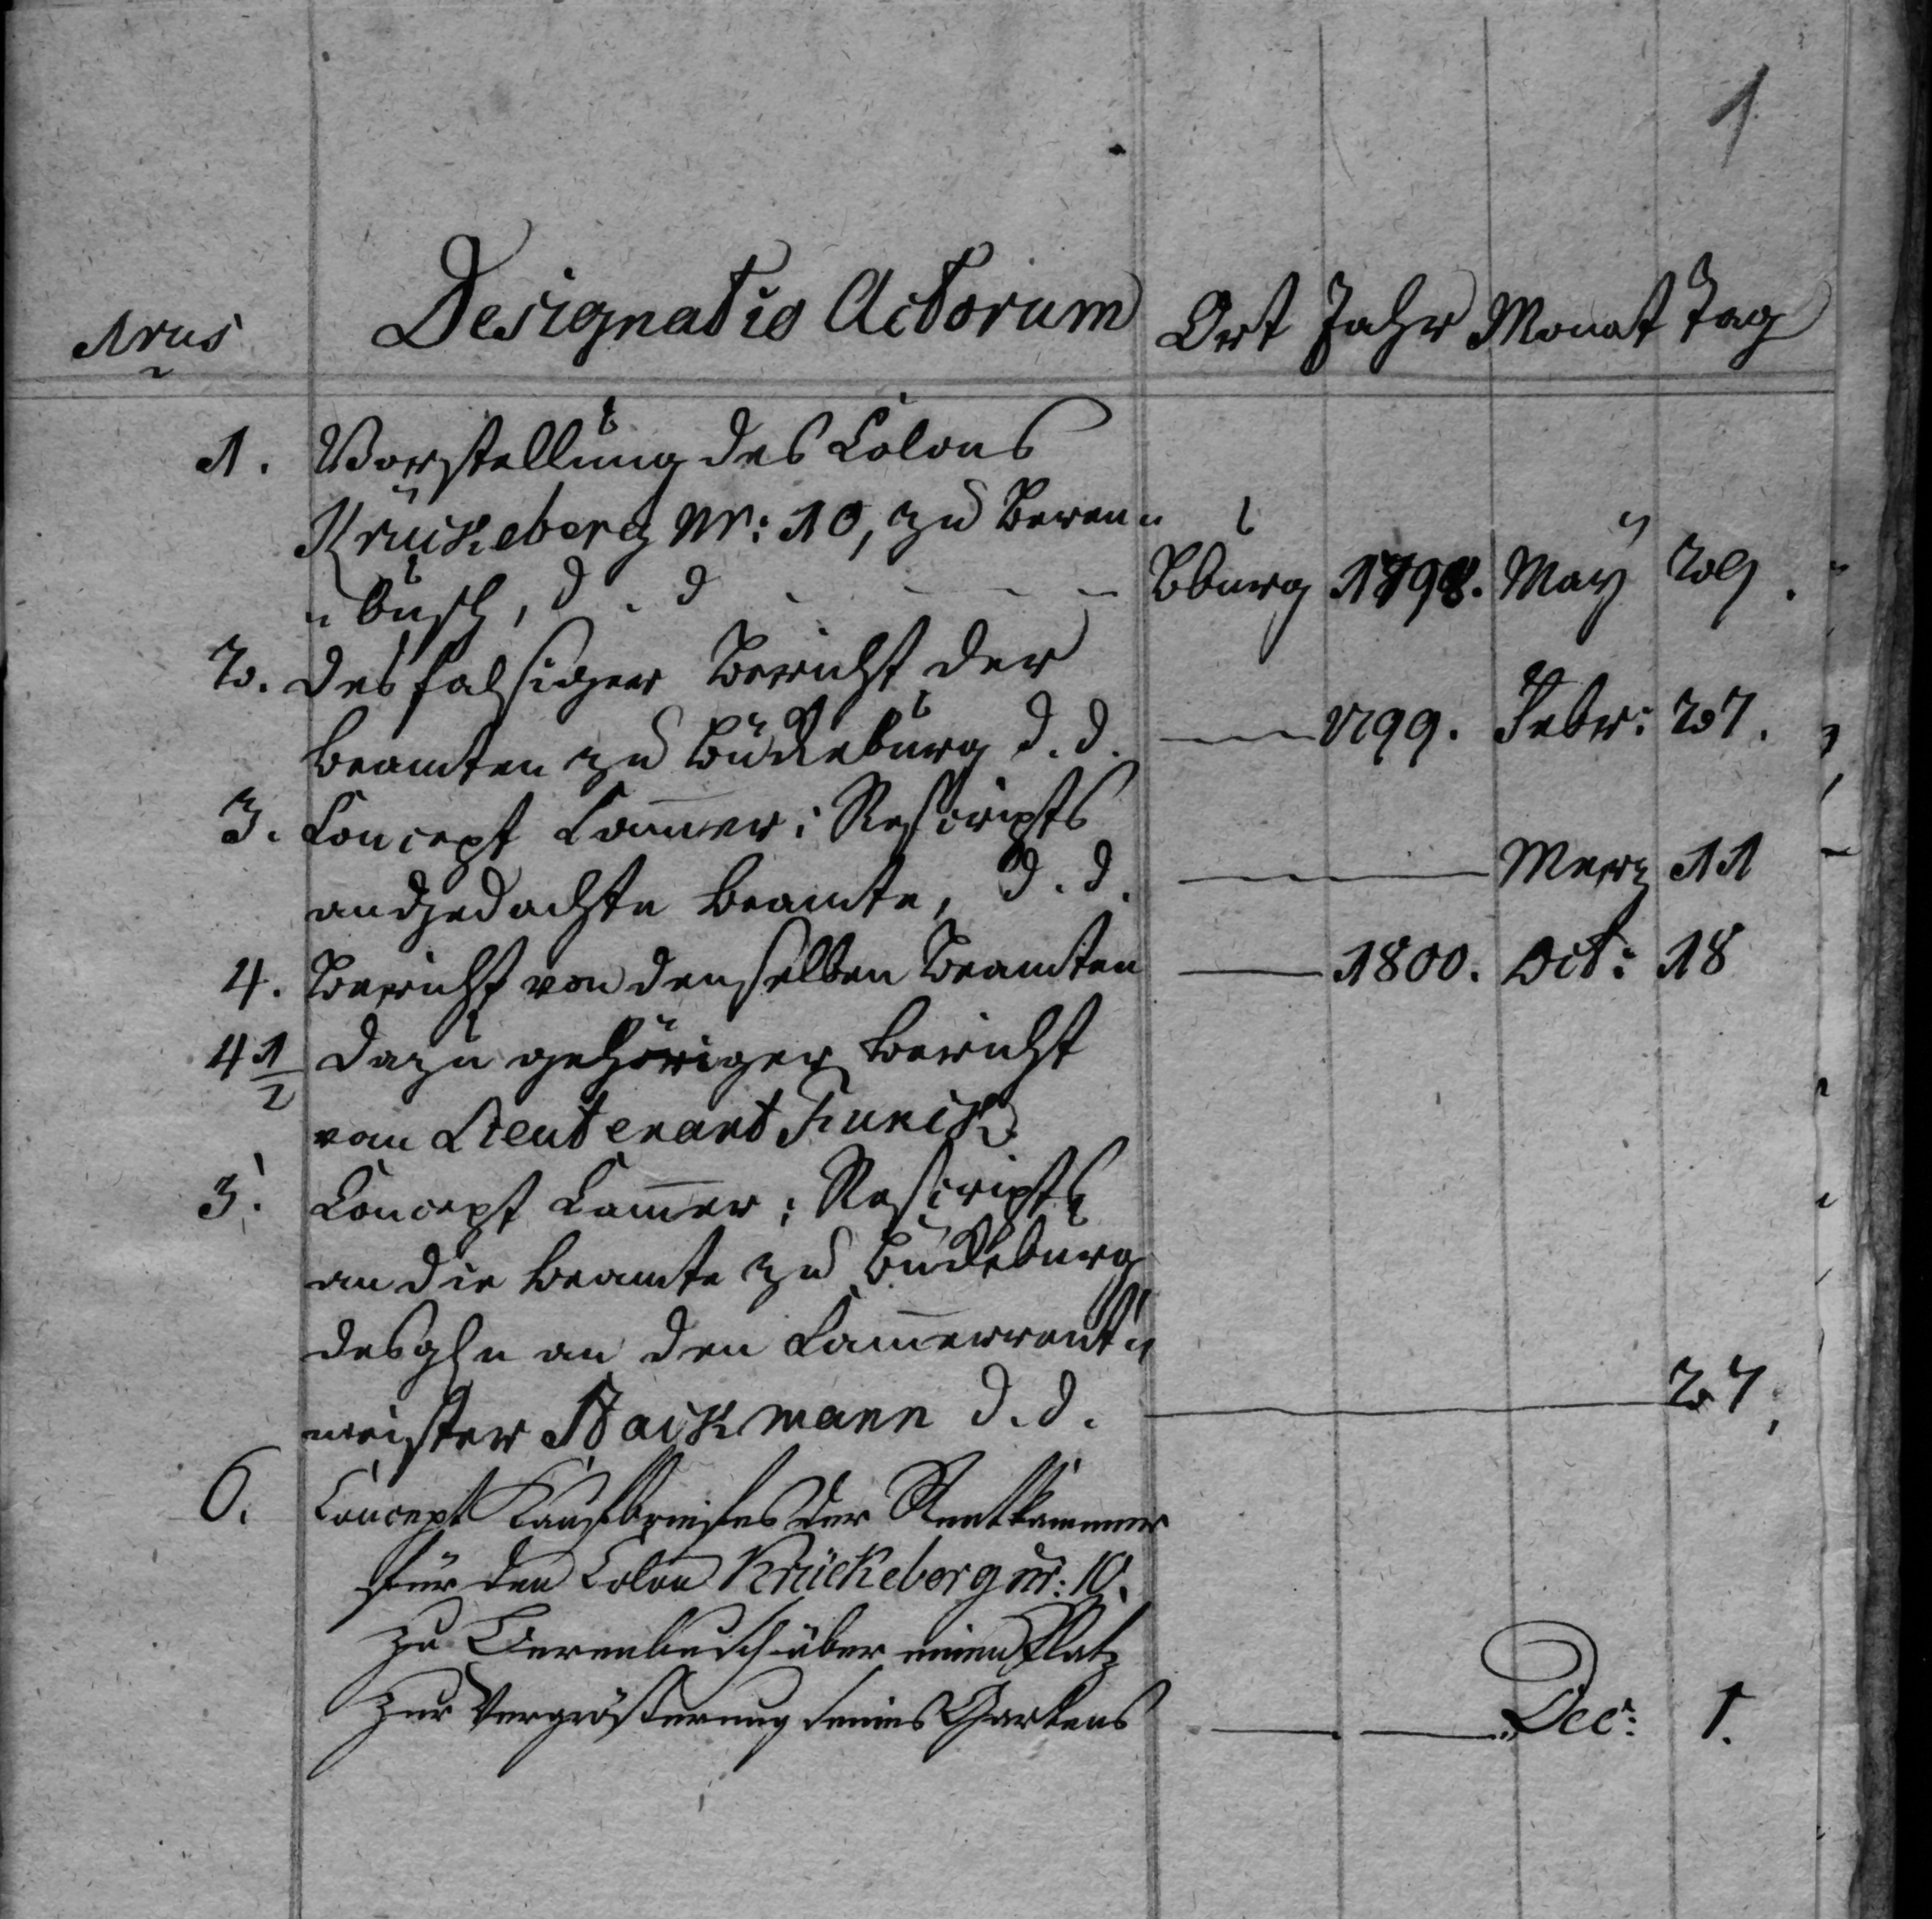 1
Nrus Designatio Actorum Ort Jahr Monat Tag
1. Vorstellung des Colons
Krückeberg Nr: 10, zu Beren-
-busch, d. d. Bburg 1798. May 29.
2. Desfalsiger Bericht der
Beamten zu Bückeburg d. d. 1799. Febr: 27.
3. Concept Cammer: Rescripts
an gedachte Beamte, d. d. Merz 11
4. Bericht von denselben Beamten 1800. Oct: 18
4 1/2 Dazu gehöriger Bericht
vom Lieutenant Funck
5. Concept Cammer: Rescripts
an die Beamte zu Bückeburg
desgln an den Cammerrent-
meister Backmann d. d. 27.
6. Concept Kaufbriefes der Rentkammer
für den Colon Krückeberg nr: 10.
zu Berenbusch über einen Platz
zur Vergrößerung seines Gartens Dec: 1.